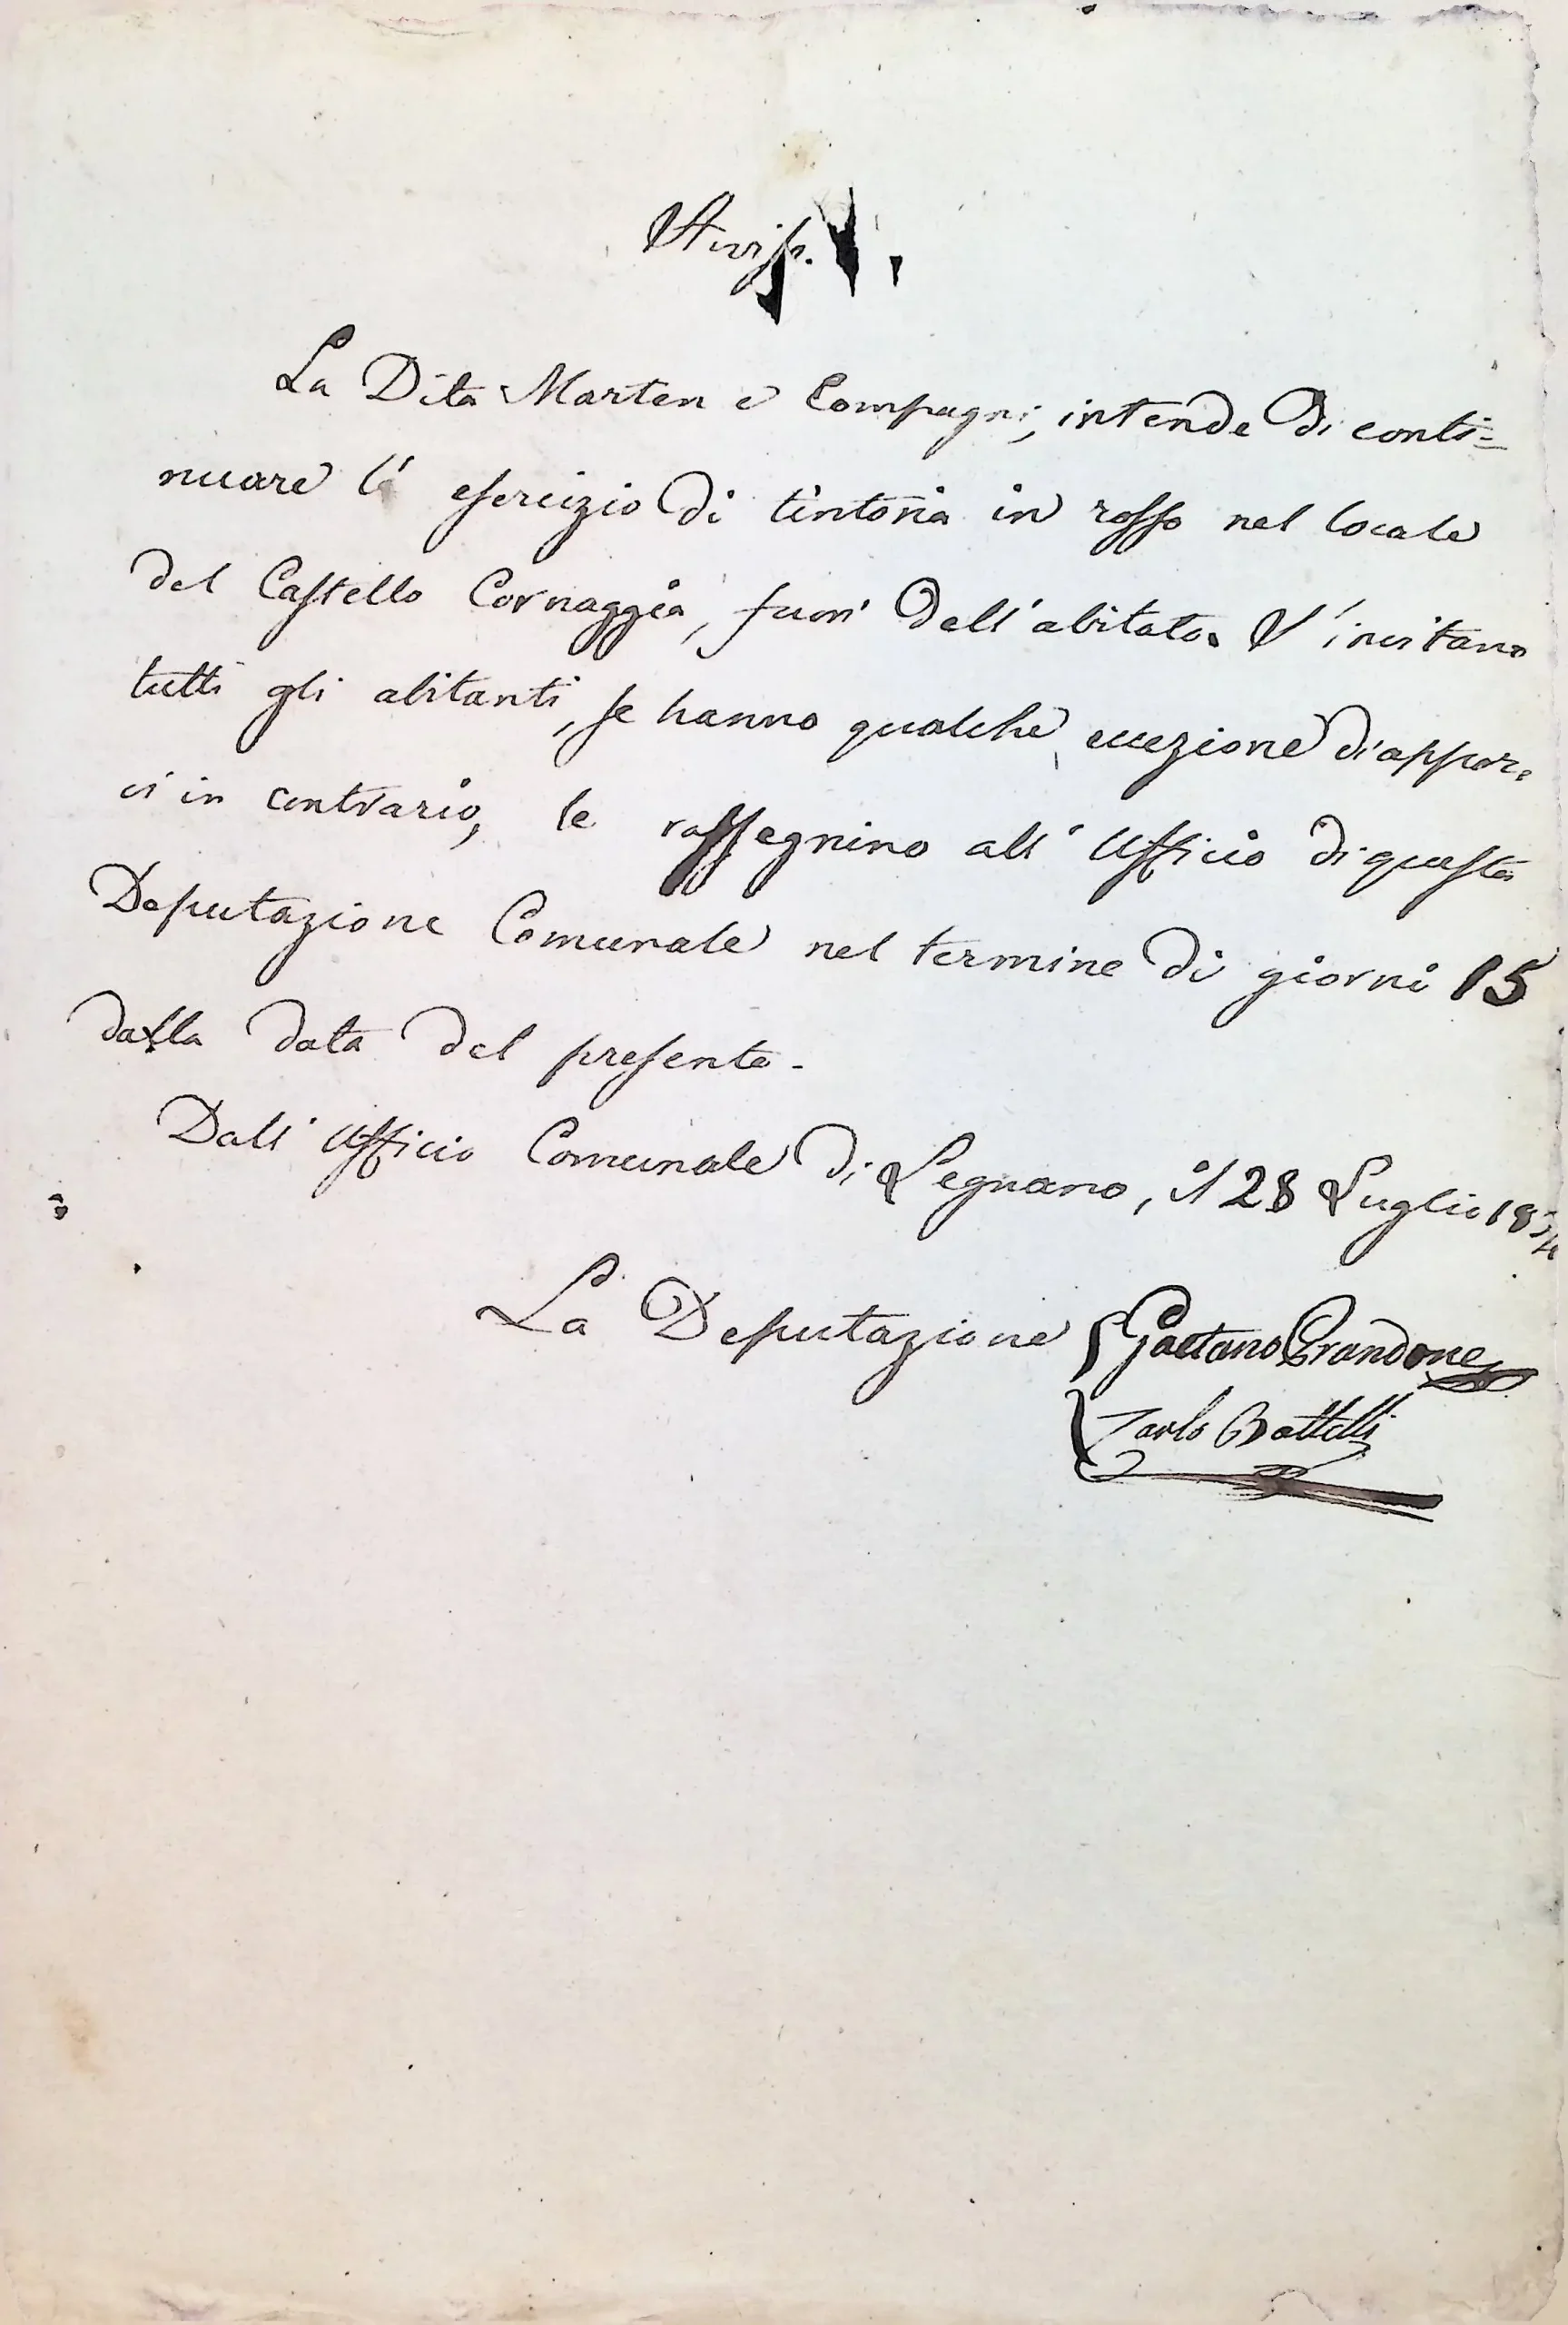 Aviso.
La Dita Marten e Compagni, intende di conti=
nuare l' esercizio di tintoria in rosso nel locale
del Castello Cornaggia, fuori dell'abitato. S'invitano
tutti gli abitanti, se hanno qualche eccezione di appor=
ci in contrario, le rassegnino all'Ufficio di questa
Deputazione Comunale nel termine di giorni 15
dalla data del presente.
Dall'Ufficio Comunale di Legnano, il 28 Luglio
La Deputazione Gaetano Prandone
Carlo Battelli